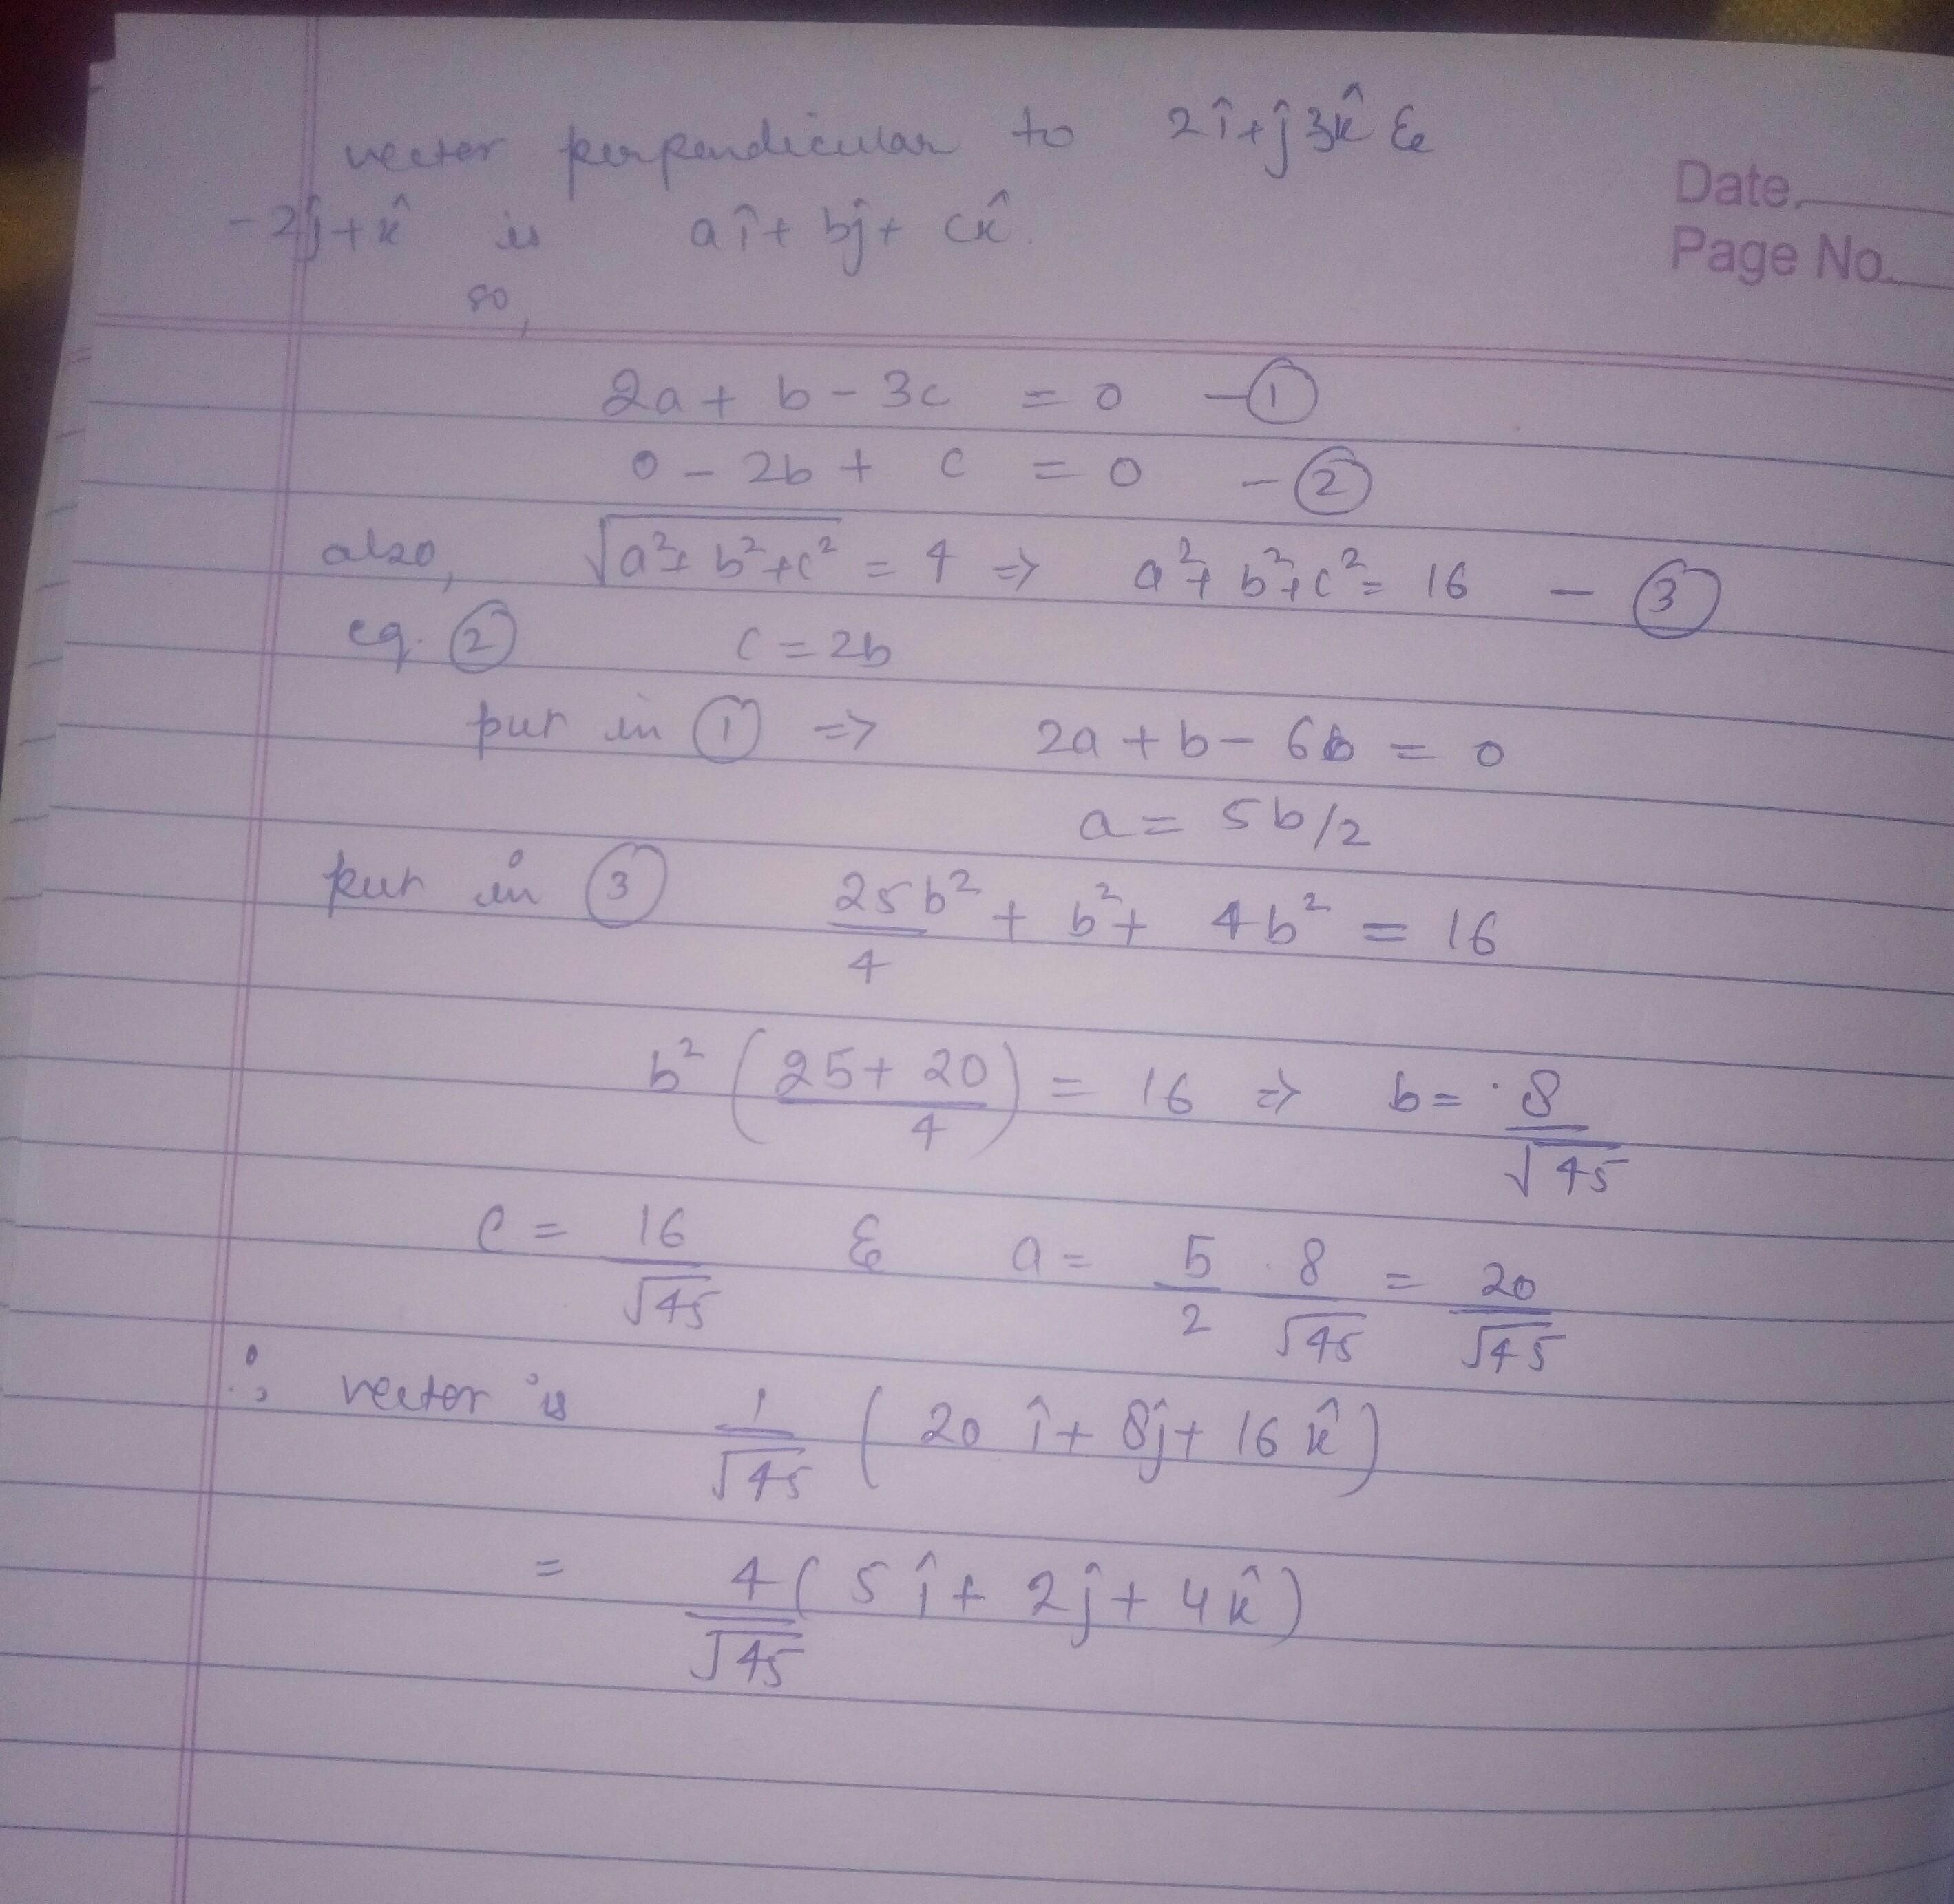 vector perpendicular to 2î+ĵ 3k̂ &
Date.
-2ĵ+k̂ is aî+ bĵ+ ck̂.
Page No.
so,
2a + b - 3c = 0 - ①
0 - 2b + c = 0 - ②
also, √(a²+ b²+c²) = 4 => a²+ b²+c² = 16 - ③
eq. ② c = 2b
put in ① => 2a + b - 6b = 0
a = 5b/2
put in ③ 25b²/4 + b²+ 4b² = 16
b² ((25+ 20)/4) = 16 => b = 8/√45
c = 16/√45 & a = 5/2 . 8/√45 = 20/√45
∴ vector is 1/√45 ( 20 î+ 8ĵ+ 16 k̂)
= 4/√45 ( 5 î + 2ĵ + 4k̂)